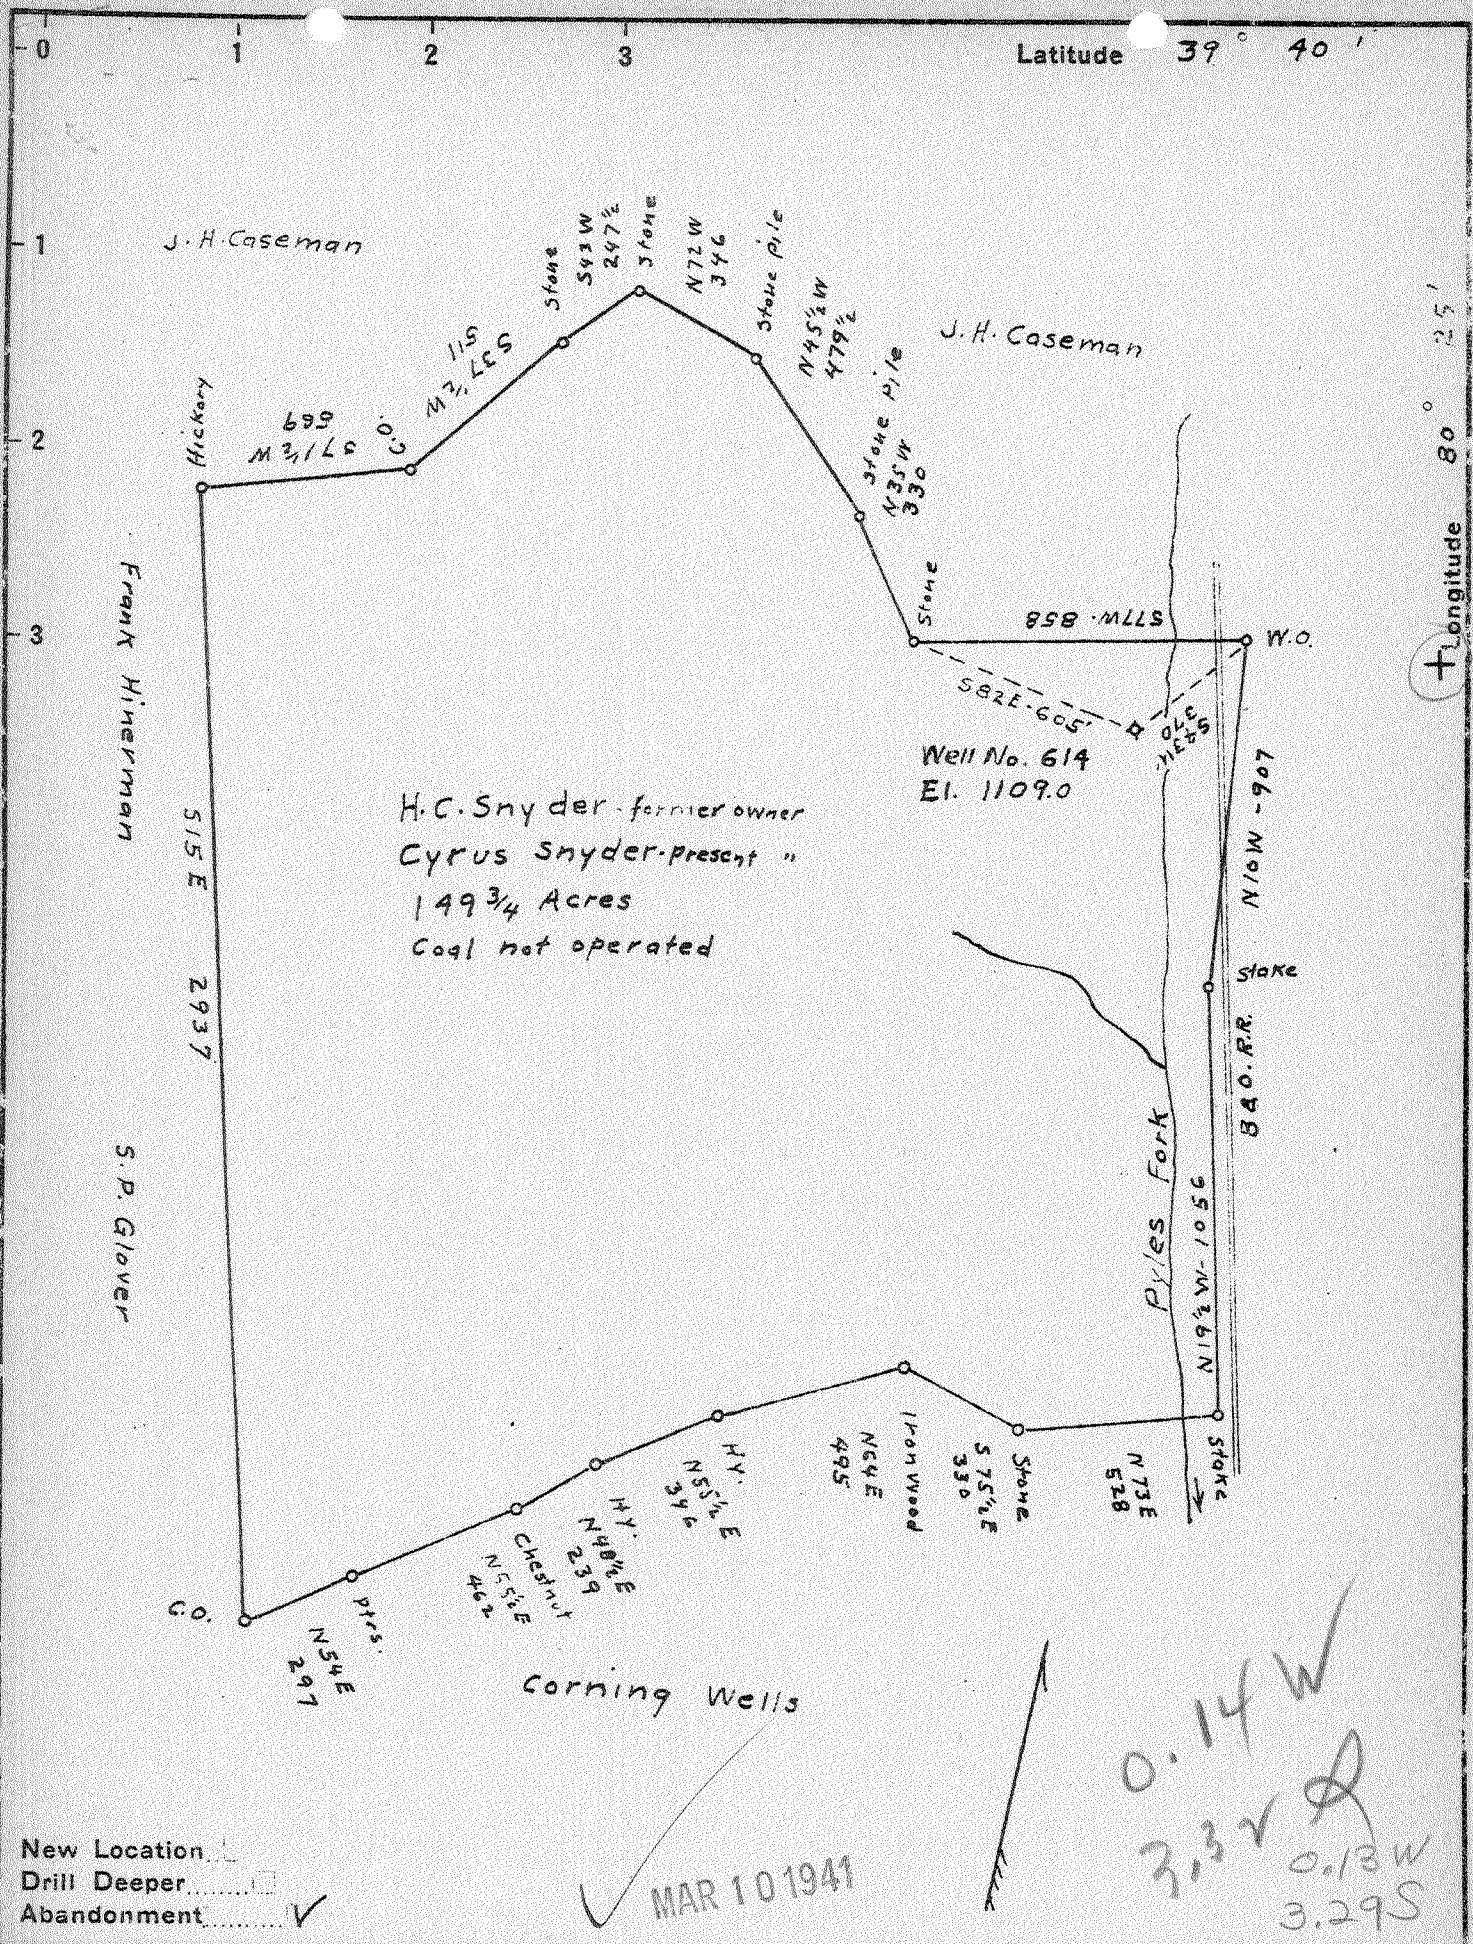 0
1
2
3
Latitude 39° 40'
1
2
3
Longitude 80° 25'
J. H. Caseman
J. H. Caseman
Hickory
S71½W
569
C.O.
S37½W
511
Stone
S43W
247½
Stone
N72W
346
Stone Pile
N45½W
479½
Stone Pile
N35W
330
Stone
S77W. 858
W.O.
S82E-605'
S43W
370
Well No. 614
El. 1109.0
N01W-907
Stake
B&O.R.R.
Pyles Fork
N19½W-1056
Stake
N73E
528
Stone
S75½E
330
Ironwood
N64E
495
HY.
N55½E
396
HY.
N48½E
239
Chestnut
N55½E
462
ptrs.
N54E
297
C.O.
Frank Hinerman
S15E 2937
S.P. Glover
H.C. Snyder-former owner
Cyrus Snyder-present "
149¾ Acres
Coal not operated
Corning Wells
0.14 W
0.13 W
3.29S
New Location
Drill Deeper
Abandonment ✓
MAR 10 1941